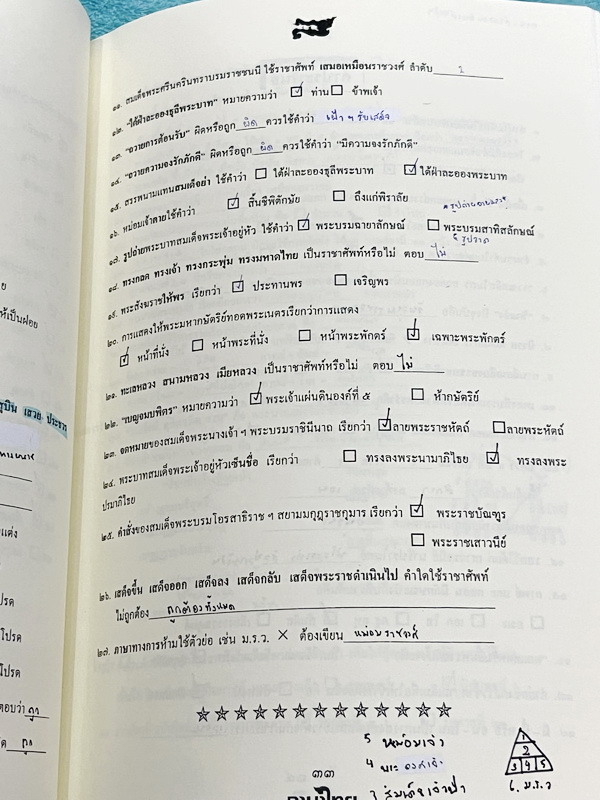 ๑๑. สมเด็จพระศรีนครินทราบรมราชชนนี ใช้ราชาศัพท์ เสมอเหมือนราชวงศ์ ลำดับ 1
๑๒. "ใต้ฝ่าละอองธุลีพระบาท" หมายความว่า ☑ ท่าน ☐ ข้าพเจ้า
๑๓. "ถวายการต้อนรับ" ผิดหรือถูก ผิด ควรใช้คำว่า เฝ้า ฯ รับเสด็จ
๑๔. "ถวายความจงรักภักดี" ผิดหรือถูก ผิด ควรใช้คำว่า "มีความจงรักภักดี"
๑๕. สรรพนามแทนสมเด็จย่า ใช้คำว่า ☐ ใต้ฝ่าละอองธุลีพระบาท ☑ ใต้ฝ่าละอองพระบาท
๑๖. หม่อมเจ้าตายใช้คำว่า ☑ สิ้นชีพิตักษัย ☐ ถึงแก่พิราลัย
๑๗. รูปถ่ายพระบาทสมเด็จพระเจ้าอยู่หัว ใช้คำว่า ☑ พระบรมฉายาลักษณ์ ☐ พระบรมสาทิสลักษณ์
รูปวาด
๑๘. ทรงกลด ทรงเจ้า ทรงกระพุ่ม ทรงมหาดไทย เป็นราชาศัพท์หรือไม่ ตอบ ไม่
๑๙. พระสังฆราชให้พร เรียกว่า ☑ ประทานพร ☐ เจริญพร
๒๐. การแสดงให้พระมหากษัตริย์ทอดพระเนตรเรียกว่าการแสดง
☑ หน้าที่นั่ง ☐ หน้าพระที่นั่ง ☐ หน้าพระพักตร์ ☑ เฉพาะพระพักตร์
๒๑. ทะเลหลวง สนามหลวง เมียหลวง เป็นราชาศัพท์หรือไม่ ตอบ ไม่
๒๒. "เบญจมบพิตร" หมายความว่า ☑ พระเจ้าแผ่นดินองค์ที่ ๕ ☐ ห้ากษัตริย์
๒๓. จดหมายของสมเด็จพระนางเจ้า ฯ พระบรมราชินีนาถ เรียกว่า ☑ ลายพระราชหัตถ์ ☐ ลายพระหัตถ์
๒๔. พระบาทสมเด็จพระเจ้าอยู่หัวเซ็นชื่อ เรียกว่า ☐ ทรงลงพระนามาภิไธย ☑ ทรงลงพระ
ปรมาภิไธย
๒๕. คำสั่งของสมเด็จพระบรมโอรสาธิราช ฯ สยามมกุฎราชกุมาร เรียกว่า ☑ พระราชบัณฑูร
☐ พระราชเสาวนีย์
๒๖. เสด็จขึ้น เสด็จออก เสด็จลง เสด็จกลับ เสด็จพระราชดำเนินไป คำใดใช้ราชาศัพท์
ไม่ถูกต้อง ถูกต้องทั้งหมด
๒๗. ภาษาทางการห้ามใช้ตัวย่อ เช่น ม.ร.ว. ✕ ต้องเขียน หม่อมราชวงศ์
☆☆☆☆☆☆☆☆☆☆☆☆☆
๓๓
5 หม่อมเจ้า
4 พระองค์เจ้า
3 สมเด็จเจ้าฟ้า
1
2
3 4 5
6. ม.ร.ว
ให้เป็นฝอย
เสวย ประชวร
โปรด
โปรด
ตอบว่า ถูก
ถูก